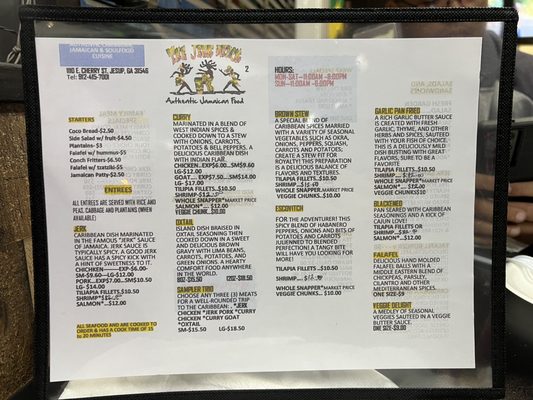 JAMAICAN & SOULFOOD
CUISINE
1110 E. CHERRY ST. JESUP, GA 31546
Tel: 912-465-7001
2
Authentic Jamaican Food
HOURS:
MON-SAT-11:00AM -8:00PM
SUN-11:00AM -6:00PM
STARTERS
Coco Bread-$2.50
Side Salad w/ fruit-$4.50
Plantains- $3
Falafel w/ hummus-$5
Conch Fritters-$6.50
Falafel w/ tzatziki-$5
Jamaican Patty-$2.50
ENTREES
ALL ENTREES ARE SERVED WITH RICE AND
PEAS, CABBAGE AND PLANTAINS (WHEN
AVAILABLE)
JERK
CARIBBEAN DISH MARINATED
IN THE FAMOUS "JERK" SAUCE
OF JAMAICA. JERK SAUCE IS
TYPICALLY SPICY. A GOOD JERK
SAUCE HAS A SPICY KICK WITH
A HINT OF SWEETNESS TO IT.
LG-$12.00
LG- $14.00
TILAPIA FILLETS.$10.50
SHRIMP
SALMON*...$12.00
ALL SEAFOOD AND ARE COOKED TO
ORDER & HAS A COOK TIME OF 15
to 20 MINUTES
CURRY
MARINATED IN A BLEND OF
WEST INDIAN SPICES &
COOKED DOWN TO A STEW
WITH ONIONS, CARROTS,
POTATOES & BELL PEPPERS. A
DELICIOUS CARIBBEAN DISH
WITH INDIAN FLAIR.
CHICKEN...EXP$6.00...SM$9.60
LG-$12.00
GOAT.....EXP$7.50...SM$14.00
LG- $17.00
TILPIA FILLETS..$10.50
SHRIMP
WHOLE SNAPPER*MARKET PRICE
SALMON*.... $12.00
VEGGIE CHUNK..$10.00
OXTAIL
ISLAND DISH BRAISED IN
OXTAIL SEASONING THEN
COOKED DOWN IN A SWEET
AND DELICIOUS BROWN
GRAVY WITH LIMA BEANS,
CARROTS, POTATOES, AND
GREEN ONIONS. A HEARTY
COMFORT FOOD ANYWHERE
IN THE WORLD.
SAMPLER TRIO
CHOOSE ANY THREE (3) MEATS
FOR A WELL-ROUNDED TRIP
TO THE CARIBBEAN. *JERK
CHICKEN *JERK PORK *CURRY
CHICKEN *CURRY GOAT
*OXTAIL
SM-$15.50 LG-$18.50
BROWN STEW
A SPECIAL BLEND OF
CARIBBEAN SPICES MARRIED
WITH A VARIETY OF SEASONAL
VEGETABLES SUCH AS OKRA,
ONIONS, PEPPERS, SQUASH,
CARROTS AND POTATOES;
CREATE A STEW FIT FOR
ROYALTY! THIS PREPARATION
IS A DELICIOUS BALANCE OF
FLAVORS AND TEXTURES.
TILAPIA FILLETS..$10.50
SHRIMP
WHOLE SNAPPER*MARKET PRICE
VEGGIE CHUNKS..$10.00
ESCOVITCH
FOR THE ADVENTURER! THIS
SPICY BLEND OF HABANERO
PEPPERS, ONIONS AND BITS OF
POTATOES AND CARROTS
JULIENNED TO BLENDED
PERFECTION! A TANGY BITE
WILL HAVE YOU LOOKING FOR
MORE!
TILAPIA FILLETS ..$10.50
SHRIMP
WHOLE SNAPPER*MARKET PRICE
VEGGIE CHUNK.. $10.00
GARLIC PAN FRIED
A RICH GARLIC BUTTER SAUCE
IS CREATED WITH FRESH
GARLIC, THYME, AND OTHER
HERBS AND SPICES; SAUTEED
WITH YOUR FISH OF CHOICE.
THIS IS A DELICIOUSLY MILD
DISH BURSTING WITH GREAT
FLAVORS; SURE TO BE A
FAVORITE
TILAPIA FILLETS..$10.50
SHRIMP
SALMON*...$12.00
WHOLE SNAPPER*MARKET PRICE
VEGGIE CHUNKS$10
BLACKENED
PAN SEARED WITH CARIBBEAN
SEASONINGS AND A KICK OF
CAJUN LOVE!
TILAPIA FILLETS OR
SHRIMP
SALMON*...$12.00
FALAFEL
DELICIOUS HAND MOLDED
FALAFEL BALLS WITH A
MIDDLE EASTERN BLEND OF
CHICKPEAS, PARSLEY,
CILANTRO AND OTHER
MEDITERRANEAN SPICES.
ONE SIZE-$9
VEGGIE DELIGHT
A MEDLEY OF SEASONAL
VEGGIES SAUTEED IN A VEGGIE
BUTTER SAUCE.
ONE SIZE-$9.00